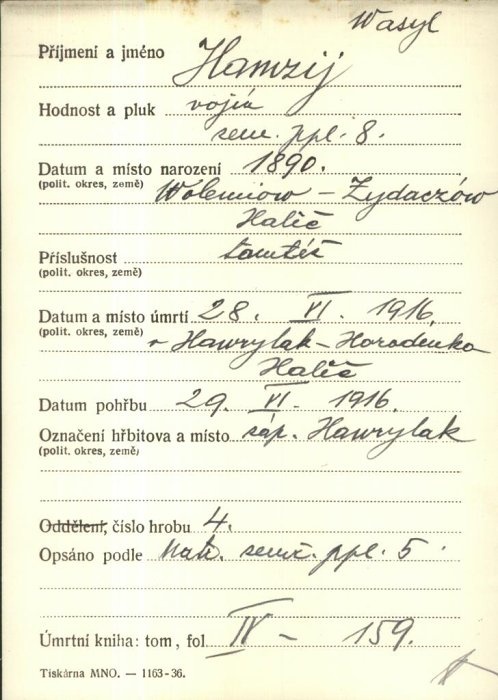 Wasyl
Příjmení a jméno Hamzij
Hodnost a pluk vojín
zem. ppl. 8.
Datum a místo narození 1890.
(polit. okres, země) Wolemiow - Zydaczów
Halič
Příslušnost tamtéž
(polit. okres, země)
Datum a místo úmrtí 28. VI. 1916
(polit. okres, země) v Hawrylak - Horodenko
Halič
Datum pohřbu 29. VI. 1916.
Označení hřbitova a místo záp. Hawrylak
(polit. okres, země)
Oddělení, číslo hrobu 4.
Opsáno podle Matr. zemř. ppl. 5
Úmrtní kniha: tom, fol. IV - 159.
Tiskárna MNO. — 1163-36.